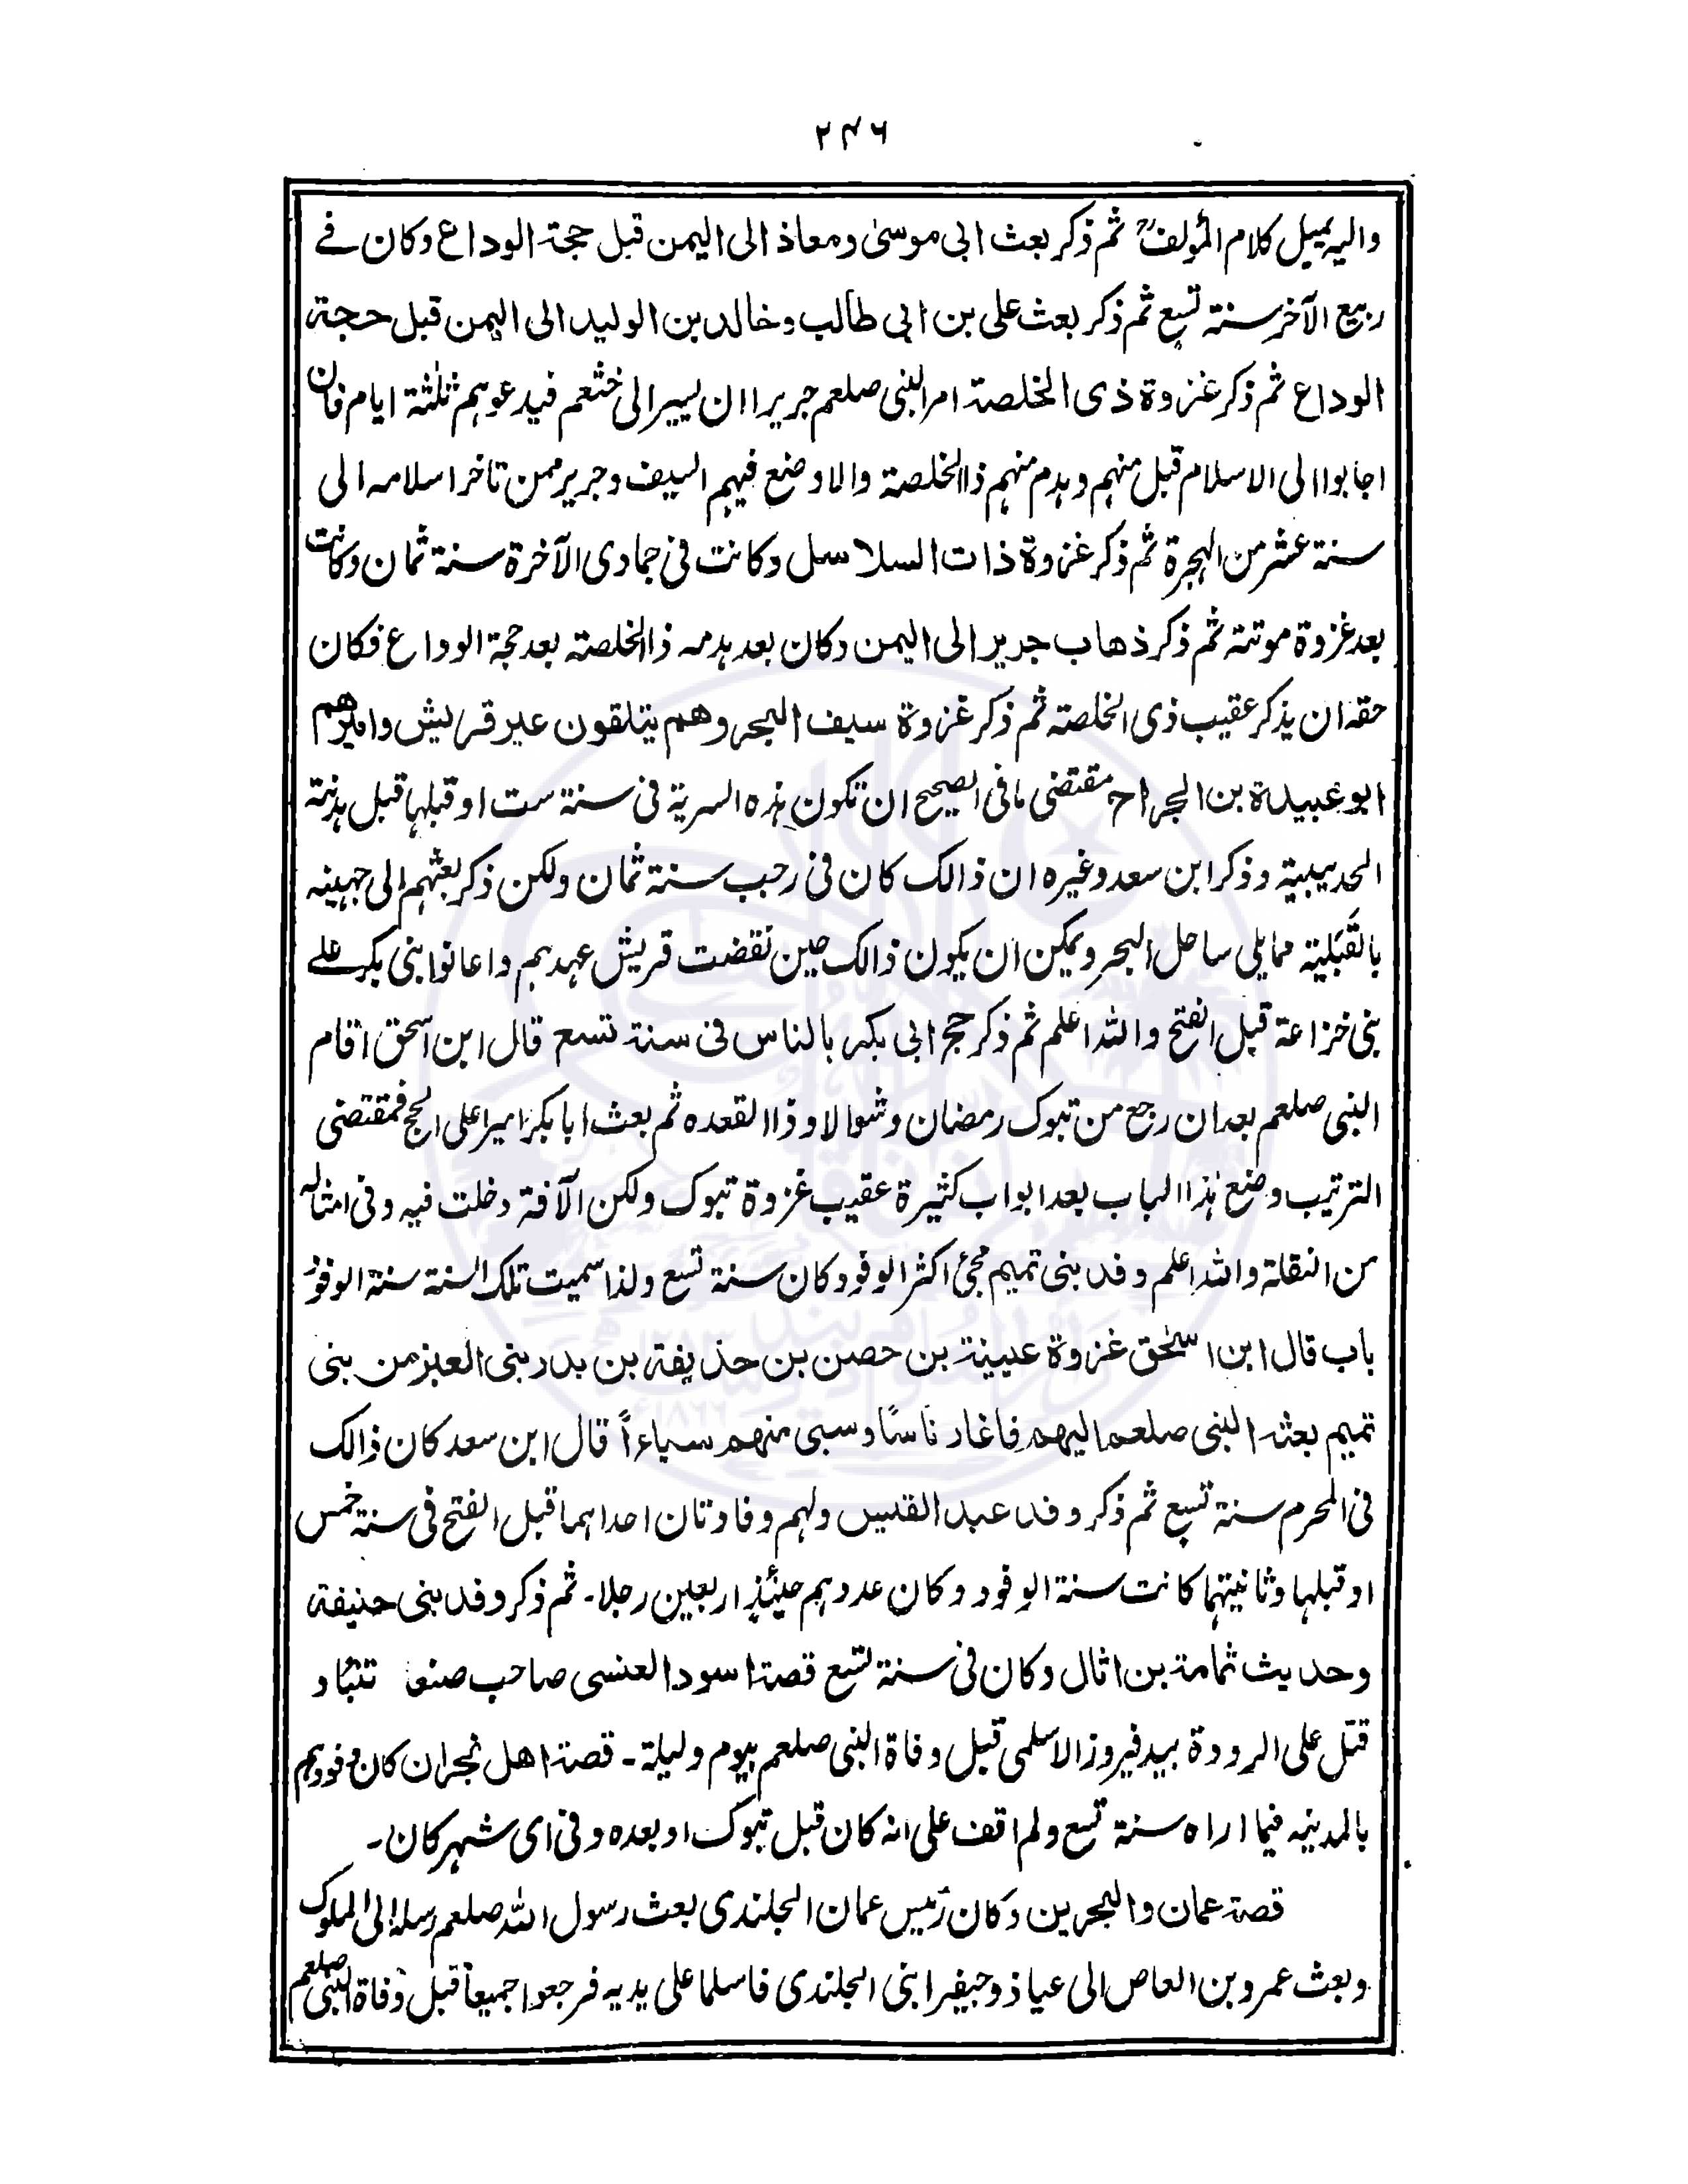 ۲۴۶
والیہ یمیل کلام المؤلفؒ ثم ذکر بعث ابی موسیٰ ومعاذ الی الیمن قبل حجۃ الوداع وکان فے
ربیع الآخر سنۃ تسع ثم ذکر بعث علی بن ابی طالب وخالد بن الولید الی الیمن قبل حجۃ
الوداع ثم ذکر غزوۃ ذی الخلصۃ امر النبی صلعم جریرا ان یسیر الی خثعم فیدعوہم ثلٰثۃ ایام فان
اجابوا الی الاسلام قبل منہم وہدم منہم ذا الخلصۃ والا وضع فیہم السیف وجریر ممن تاخر اسلامہ الی
سنۃ عشر من الہجرۃ ثم ذکر غزوۃ ذات السلاسل وکانت فی جمادی الآخرۃ سنۃ ثمان وکانت
بعد غزوۃ موتتہ ثم ذکر ذھاب جریر الی الیمن وکان بعد ہدمہ ذا الخلصتہ بعد حجۃ الوداع فکان
حقہ ان یذکر عقیب ذی الخلصتہ ثم ذکر غزوۃ سیف البحر وھم یتلقون عیر قریش وامیرھم
ابو عبیدۃ بن الجراح مقتضی ما فی الصحیح ان تکون ہذہ السریۃ فی سنۃ ست او قبلہا قبل ہدنۃ
الحدیبیۃ وذکر ابن سعد وغیرہ ان ذالک کان فی رجب سنۃ ثمان ولکن ذکر بعثہم الی جہینہ
بالقَبَلیۃ مما یلی ساحل البحر ویمکن ان یکون ذالک حین نقضت قریش عہدہم واعانوا بنی بکر علے
بنی خزاعۃ قبل الفتح واللہ اعلم ثم ذکر حج ابی بکر بالناس فی سنۃ تسع قال ابن اسحٰق اقام
النبی صلعم بعد ان رجع من تبوک رمضان وشوالا وذا القعدہ ثم بعث ابا بکر امیرا علی الحج فمقتضی
الترتیب وضع ہذا الباب بعد ابواب کثیرۃ عقیب غزوۃ تبوک ولکن الآفۃ دخلت فیہ وفی امثالہ
من النقلۃ واللہ اعلم وفد بنی تمیم مجئ اکثر الوفود کان سنۃ تسع ولذا سمیت تلک السنۃ سنۃ الوفود
باب قال ابن اسحٰق غزوۃ عیینۃ بن حصن بن حذیفۃ بن بدر بنی العنبر من بنی
تمیم بعثہ النبی صلعم الیھم فاغار ناسًا وسبی منھم سباءً قال ابن سعد کان ذالک
فی المحرم سنۃ تسع ثم ذکر وفد عبد القیس ولہم وفادتان احداہما قبل الفتح فی سنۃ خمس
او قبلہا وثانیتہما کانت سنۃ الوفود وکان عددہم حینئذٍ اربعین رجلا۔ ثم ذکر وفد بنی حنیفۃ
وحدیث ثمامۃ بن اثال وکان فی سنۃ تسع قصۃ اسود العنسی صاحب صنعا تنبّا و
قتل علی الرودۃ بید فیروز الاسلمی قبل وفاۃ النبی صلعم بیوم ولیلۃ۔ قصۃ اھل نجران کان وفودہم
بالمدینہ فیما اراہ سنۃ تسع ولم اقف علی انہ کان قبل تبوک او بعدہ وفی ای شہر کان۔
قصۃ عمان والبحرین وکان رئیس عمان الجلندی بعث رسول اللہ صلعم رسلہ الی الملوک
وبعث عمرو بن العاص الی عیاذ وجیفر ابنی الجلندی فاسلما علی یدیہ فرجعوا جمیعاً قبل وفاۃ النبی صلعم